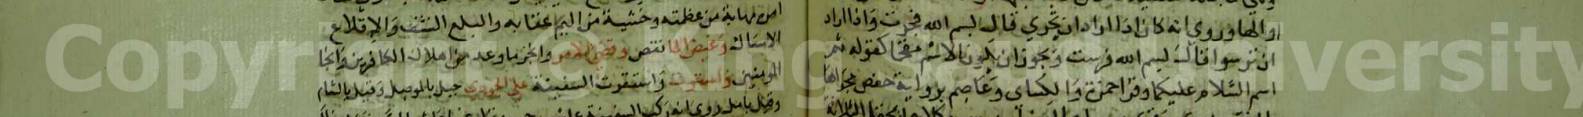 او الها وروي انه كان اذا اراد ان تجري قال بسم الله فجرت واذا اراد
ان ترسوا قال بسم الله فرست ويجوز ان يكون الاسم مقحما كقوله ثم
اسم السلام عليكما وقرا حمزة والكسائي وعاصم برواية حفص مجراها
امره مهابة من عظمته وخشية من اليم عقابه والبلع النشف والاقلاع
الامساك وغيض الماء نقص وقضي الامر وانجز ما وعد من اهلاك الكافرين وانجا
المومنين واستوت واستقرت السفينة على الجودي جبل بالموصل وقيل بالشام
وقيل بآمل روي انه ركب السفينة
Copyright King University